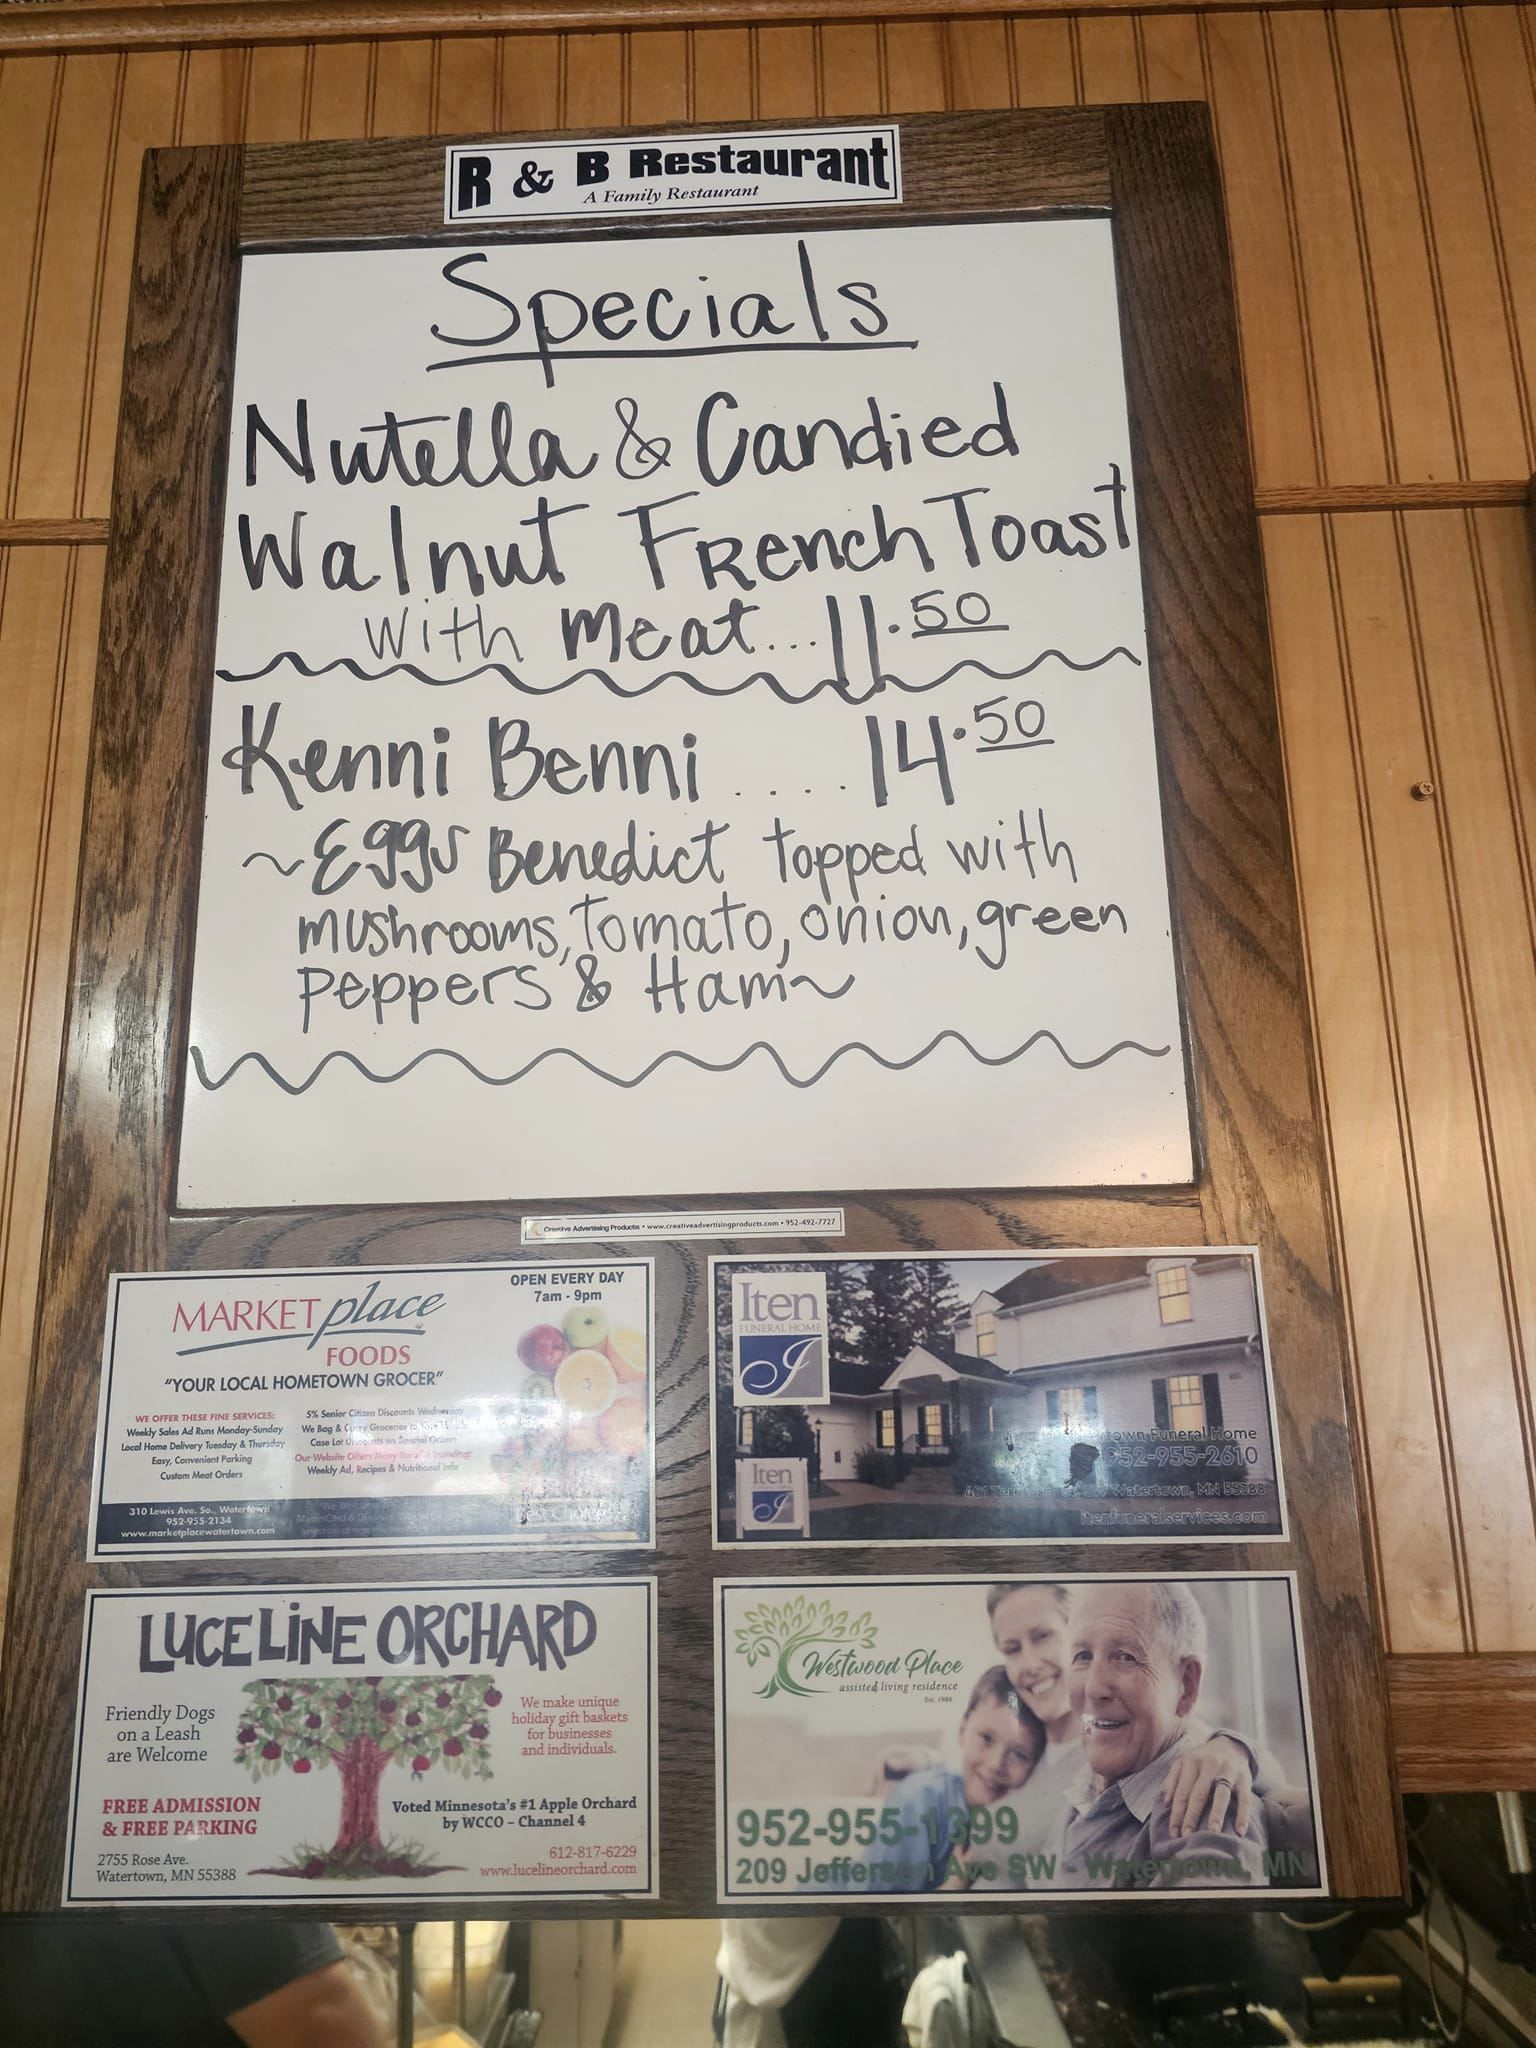 R & B Restaurant
A Family Restaurant
Specials
Nutella & Candied
Walnut French Toast
with Meat...11.50
Kenni Benni ....14.50
~Eggs Benedict topped with
mushrooms, tomato, onion, green
peppers & Ham~
Creative Advertising Products • www.creativeadvertisingproducts.com • 952-492-7727
MARKETplace
FOODS
"YOUR LOCAL HOMETOWN GROCER"
OPEN EVERY DAY
7am - 9pm
WE OFFER THESE FINE SERVICES:
Weekly Sales Ad Runs Monday-Sunday
Local Home Delivery Tuesday & Thursday
Easy, Convenient Parking
Custom Meat Orders
5% Senior Citizen Discounts Wednesday
We Bag & Carry Groceries to Your
Case Lot Discounts on Special Orders
Our Website Offers Many Including:
Weekly Ad, Recipes & Nutritional Info
310 Lewis Ave. So., Watertown
952-955-2134
www.marketplacewatertown.com
MasterCard & Discover
Best Choice
Iten
FUNERAL HOME
I
Iten
I
Funeral Home
952-955-2610
401 Watertown, MN 55388
itenfuneralservices.com
LUCE LINE ORCHARD
Friendly Dogs
on a Leash
are Welcome
FREE ADMISSION
& FREE PARKING
2755 Rose Ave.
Watertown, MN 55388
We make unique
holiday gift baskets
for businesses
and individuals.
Voted Minnesota's #1 Apple Orchard
by WCCO – Channel 4
612-817-6229
www.lucelineorchard.com
Westwood Place
assisted living residence
Est. 1988
952-955-1399
209 Jefferson Ave SW - Watertown, MN